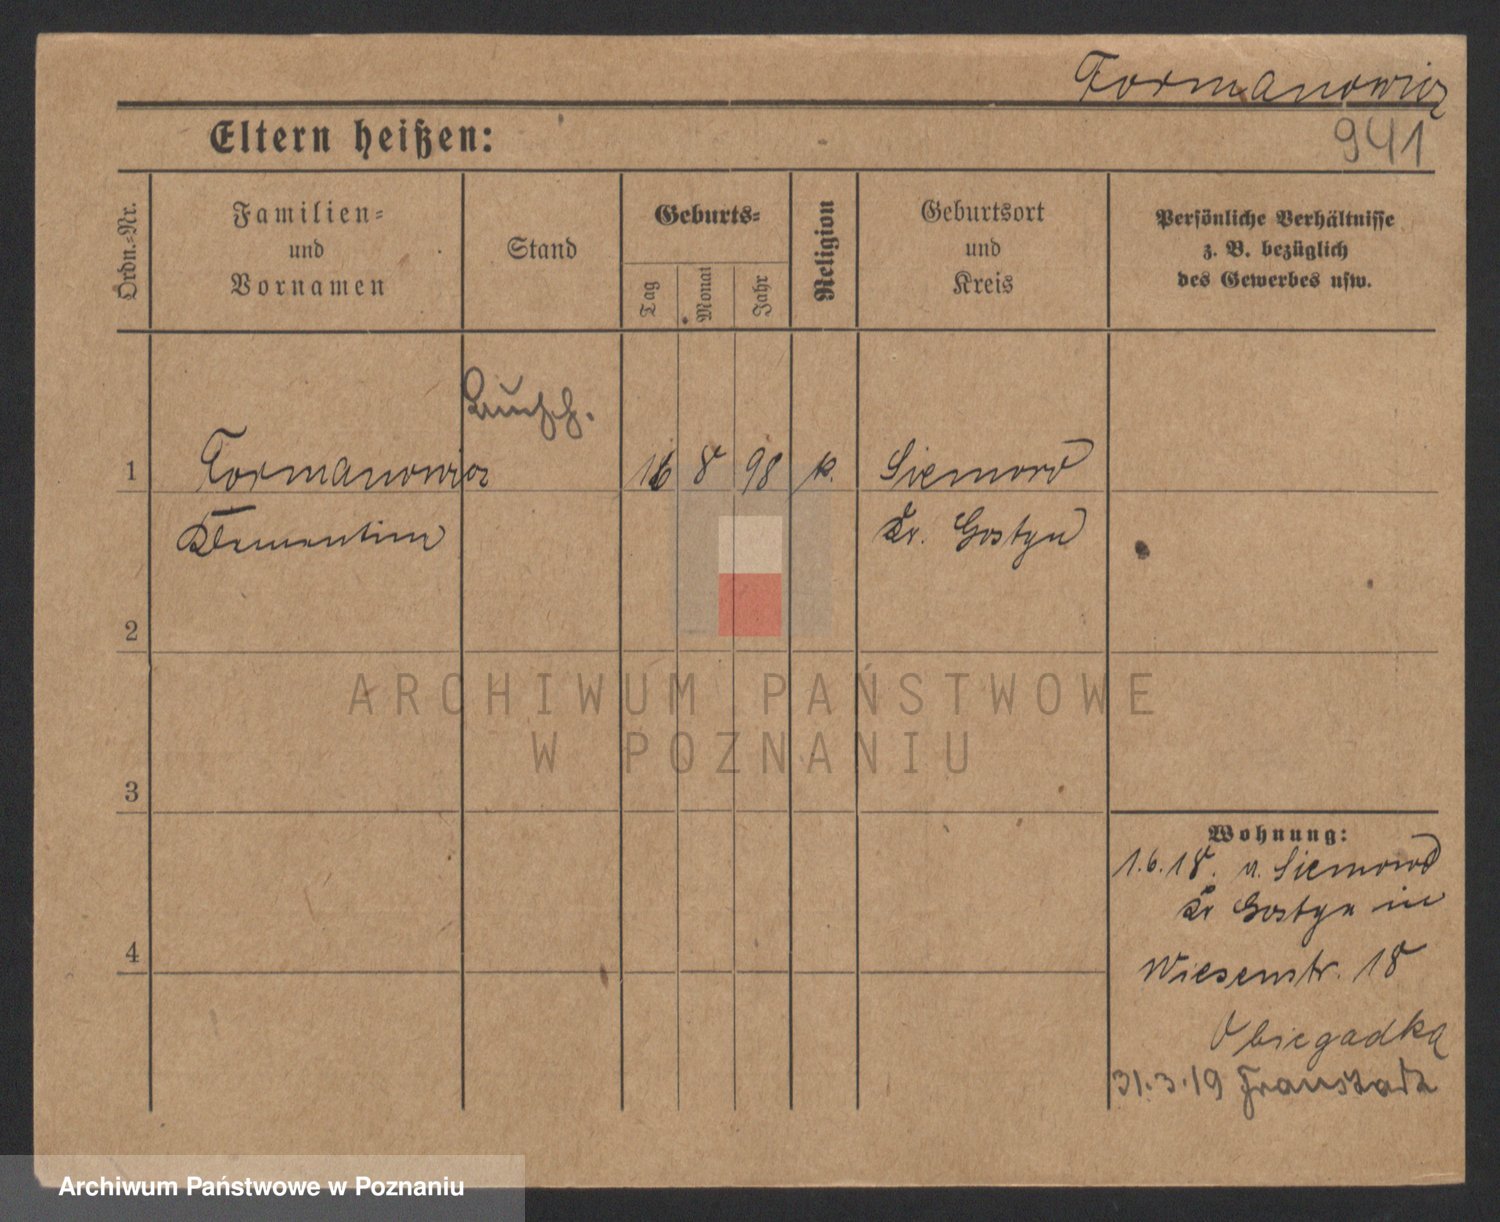 Formanowicz
941
Eltern heißen:
Ordn.-Nr.
Familien-
und
Vornamen
Stand
Geburts-
Tag
Monat
Jahr
Religion
Geburtsort
und
Kreis
Persönliche Verhältnisse
z. B. bezüglich
des Gewerbes usw.
1
Formanowicz
16 8 98 k.
Siemowo
Klementine
Kr. Gostyn
2
3
4
Wohnung:
1.6.18. v. Siemowo
Kr Gostyn in
Wiesenstr. 18
Obiegadka
31.3.19 Fraustadt
ARCHIWUM PAŃSTWOWE
W POZNANIU
Archiwum Państwowe w Poznaniu